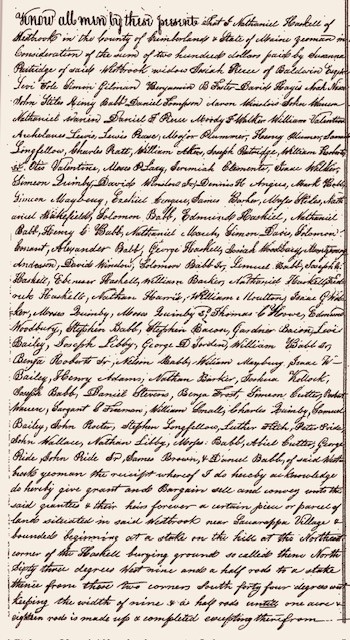 Know all men by these presents that I Nathaniel Haskell of
Westbrook in the County of Cumberland & State of Maine yeoman in
Consideration of the sum of two hundred dollars paid by Susanna
Partridge of said Westbrook widow Josiah Pierce of Baldwin Esqr
Levi Cole Simon Gilman Benjamin B Foster David Hayes
John Stiles King Babb Daniel Tompson Aaron Winslow John Warren
Nathaniel Warren Daniel T Pierce Moody F Walker William Valentine
Archelaus Lewis, Lewis Pease, Major Plummer, Henry Plummer, Samuel
Longfellow, Charles Pratt, William Akers, Joseph Partridge, William Roberts
Jr. Otis Valentine, Moses P Lacy, Jeremiah Clements, Isaac Walker,
Simeon Quimby, David Winslow Jr, Dennis H Angus, Mark Babb
Simeon Mayberry, Ezekiel Barker, James Barker, Moses Stiles, Nath
aniel Wakefield, Solomon Babb, Edmund Haskell, Nathaniel
Babb, Henry C Babb, Nathaniel March, Simon Davis, Solomon
Conant, Alexander Babb, George Haskell, Josiah Woodbury, Montgomery
Anderson, David Winslow, Solomon Babb Jr, Lemuel Babb, Joseph
Haskell, Ebenezer Haskell, William Barker, Nathaniel Haskell,
rick Haskell, Nathan Harris, William Moulton, Isaac G Wal
ker, Moses Quimby, Moses Quimby Jr, Thomas C Howe, Edmund
Woodbury, Stephen Babb, Stephen Bacon, Gardner Bacon, Levi
Bailey, Joseph Libby, George D Jordan, William Babb Jr,
Benja Roberts Jr, Nelson Babb, William Mayberry, Isaac W
Bailey, Henry Adams, Nathan Barker, Joshua
Joseph Babb, Daniel Stevens, Benja Frost, Simeon Cutter, Robert
Warren, Sargent C Freeman, William Small, Charles Quimby, Samuel
Bailey, John Porter, Stephen Longfellow, Luther Fitch, Peter Pride,
John Wallace, Nathan Libby, Moses Babb, Abiel Cutter, George
Pride John Pride Jr James Brown, & Daniel Babb, of said West
brook yeoman the receipt whereof I do hereby acknowledge
do hereby give grant and Bargain sell and convey unto the
said grantees & their heirs forever a certain piece or parcel of
land situated in said Westbrook near Saccarappa Village &
bounded beginning at a stake on the hill at the Northeast
corner of the Haskell burying ground so called thence North
sixty three degrees West nine and a half rods to a stake
thence from those two corners South forty four degrees west
keeping the width of nine & a half rods untill one acre &
eighteen rods is made up & completed excepting therefrom